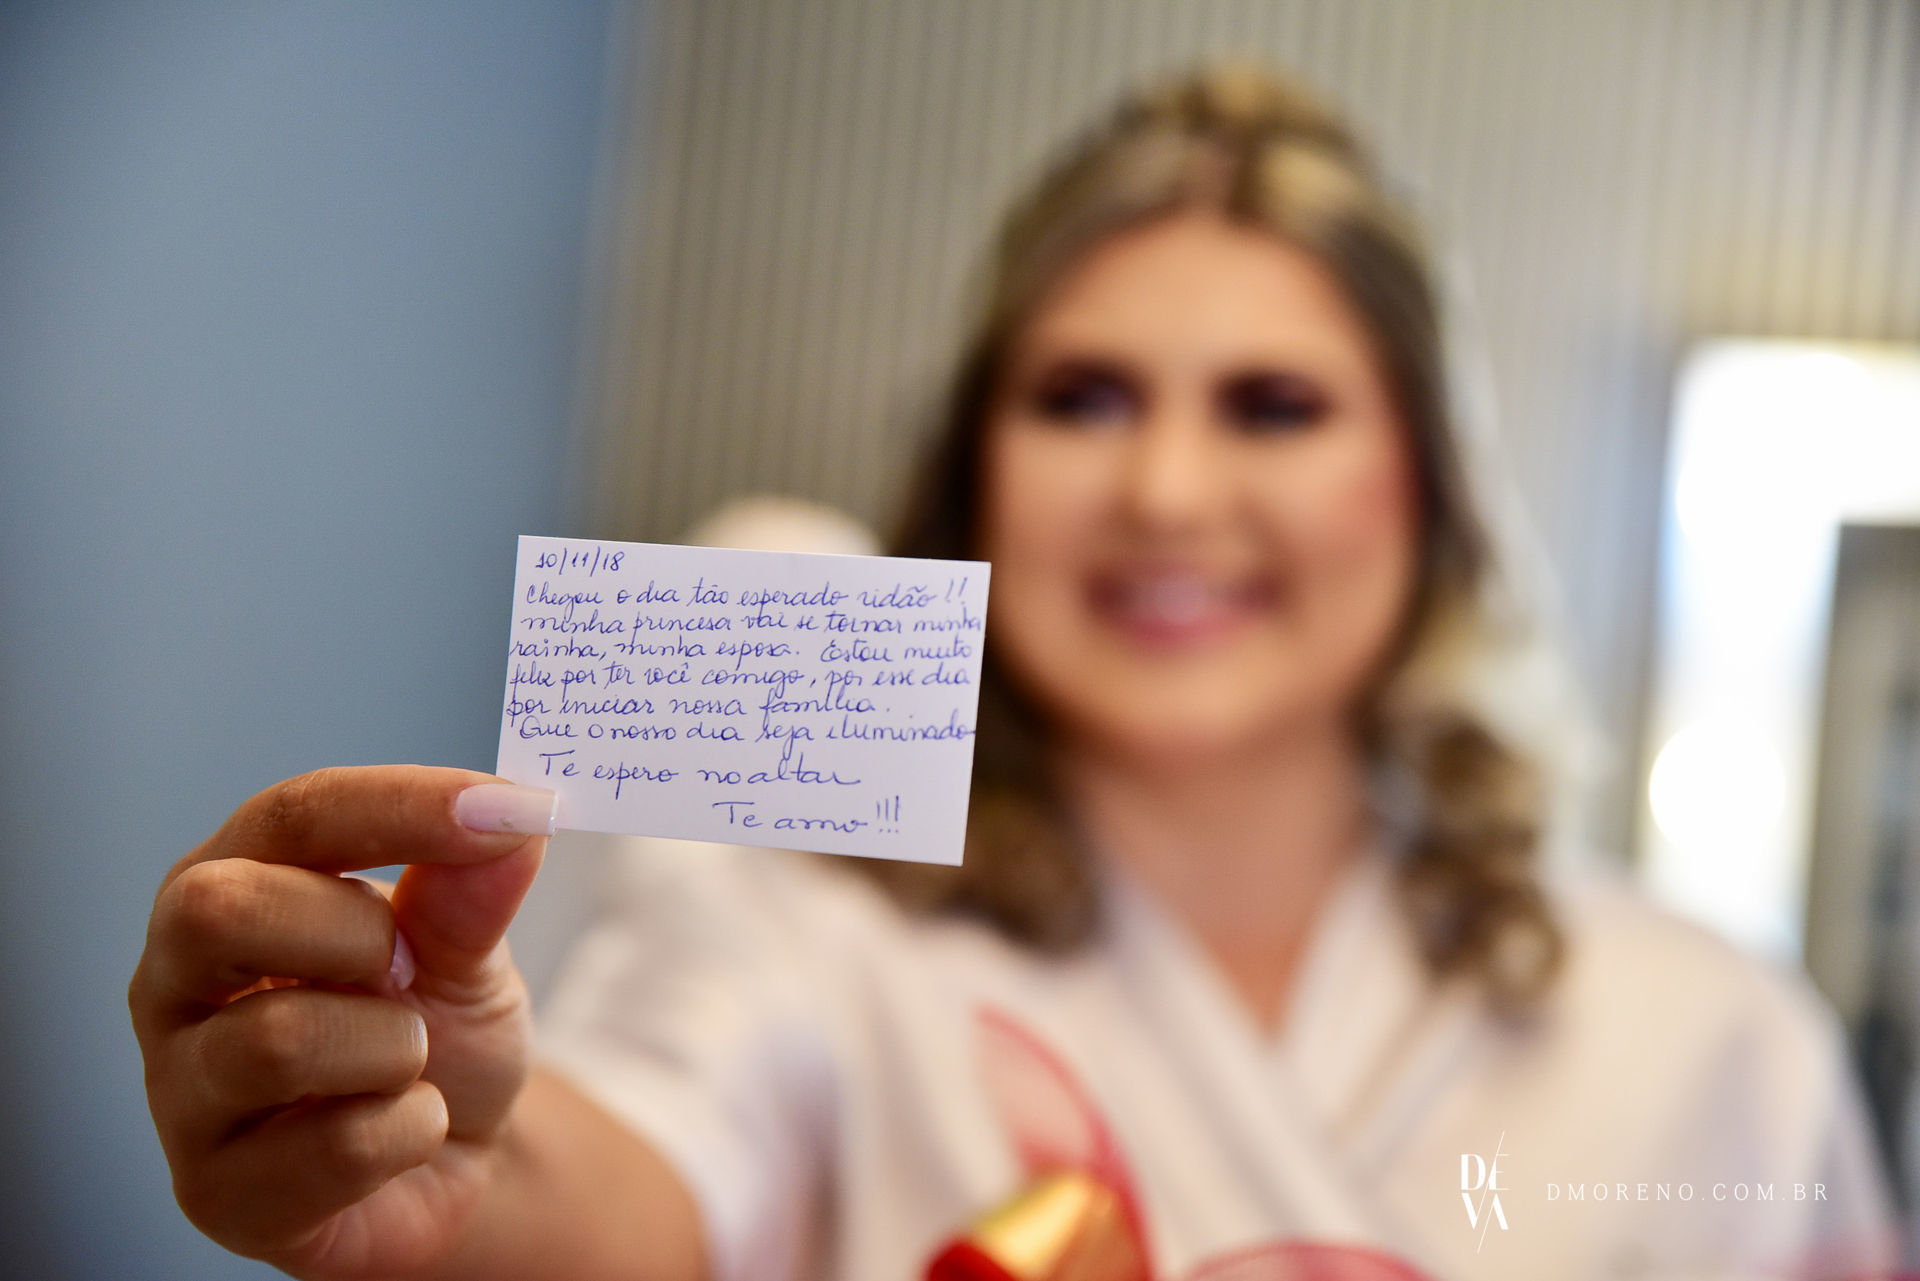 10/11/18
Chegou o dia tão esperado vidão!!
minha princesa vai se tornar minha
rainha, minha esposa. Estou muito
feliz por ter você comigo, por esse dia
por iniciar nossa família.
Que o nosso dia seja iluminado
Te espero no altar
Te amo!!!
DEVA
DMORENO.COM.BR